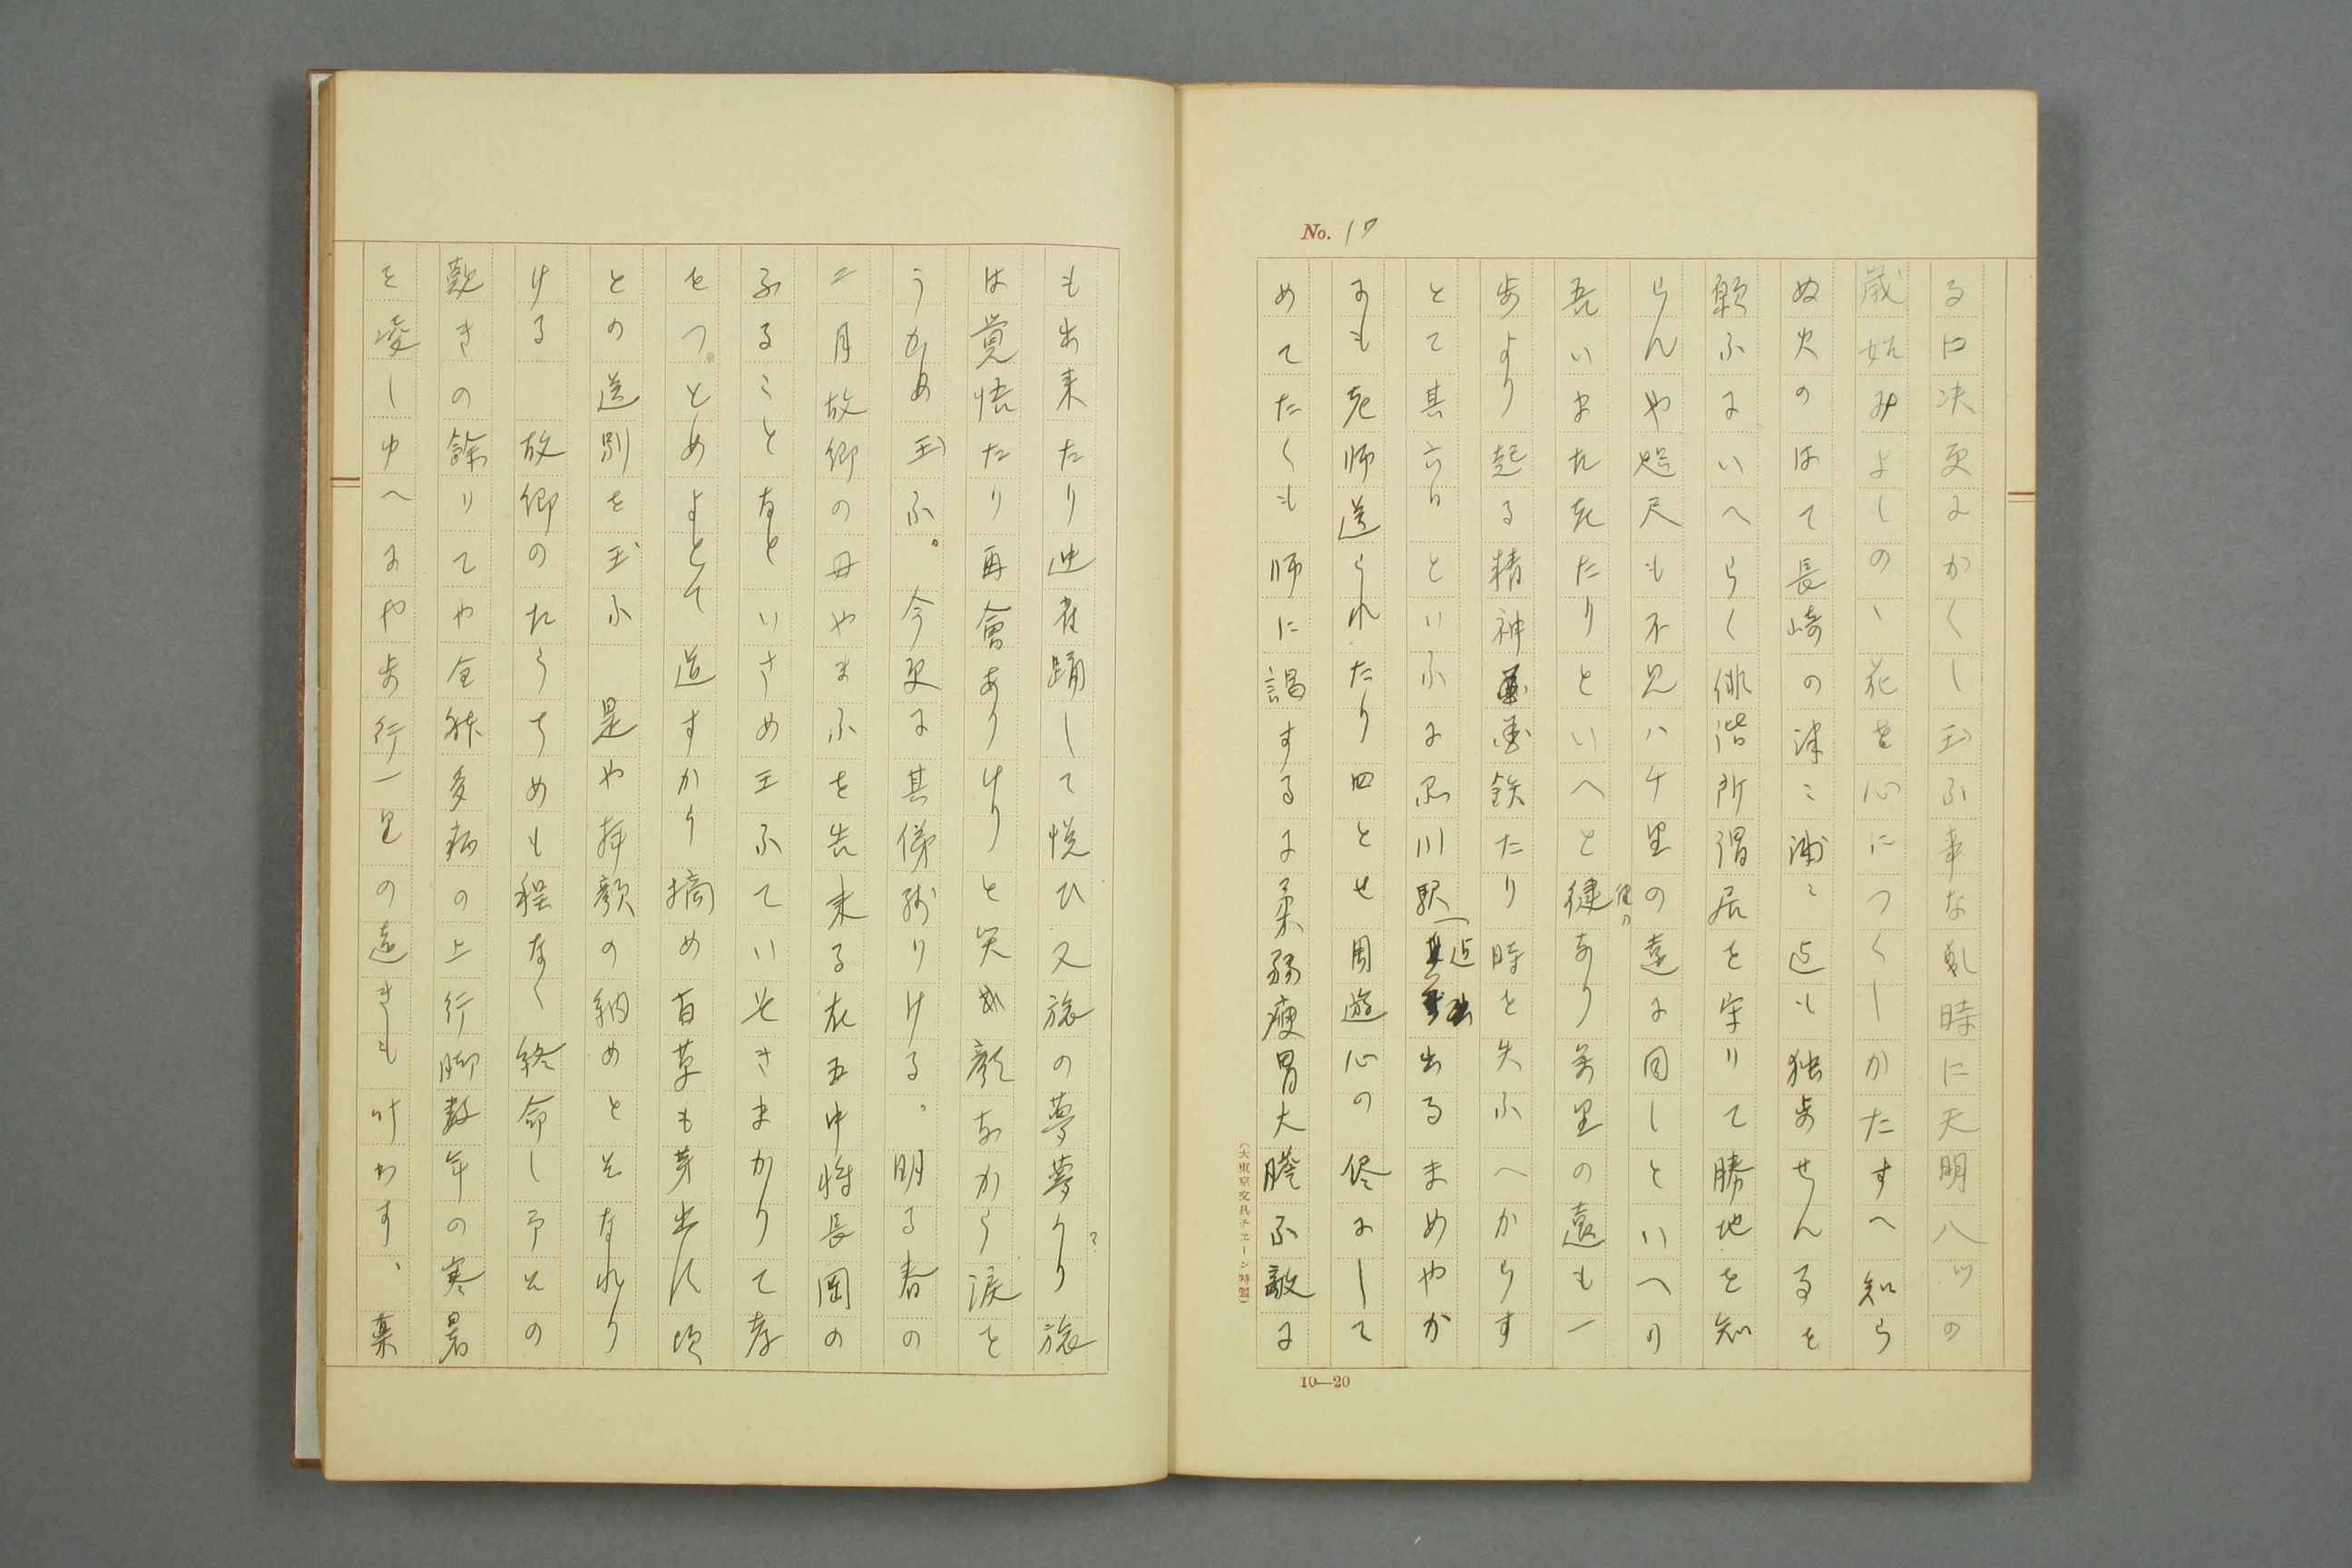 No. 17
る口决更にかくし玉ふ事なし時に天明八ツの
歳始みよしのゝ花を心につくしかたすへ知ら
ぬ火のはて長崎の津ミ浦ミ迄も独歩せんるを
願ふにいへらく俳諧所謂居を守りて勝地を知
らんや咫尺も不見ハ千里の遠に同しといへり
吾いまた老たりといへと健あり万里の遠も一
歩より起る精神金鉄たり時を失ふへからす
とて其六日といふに品川駅迄出るまめやか
にも老師送られたり四とせ周遊心の侭にして
めてたくも師に謁するに柔弱瘦胃大膽不敵に
(大東京文具チェーン特製)
10—20
も出来たり迚雀踊して悦ひ又旅の夢夢うり旅
は覚悟たり再會ありけりと笑 顔なから涙を
うかめ玉ふ。今更に其俤残りける。明る春の
二月故郷の母やまふを告来る左五中將長岡の
ふることなといさめ玉ふていそきまかりて孝
をつとめよとて 道すから摘め百草も芽出し頃
との送別を玉ふ 是や拝顔の納めとそなれり
ける 故郷のたらちめも程なく終命し予その
歎きの餘りてや全躰多病の上行脚数年の寒暑
を凌しゆへにや歩行一里の遠きも叶わす、薬